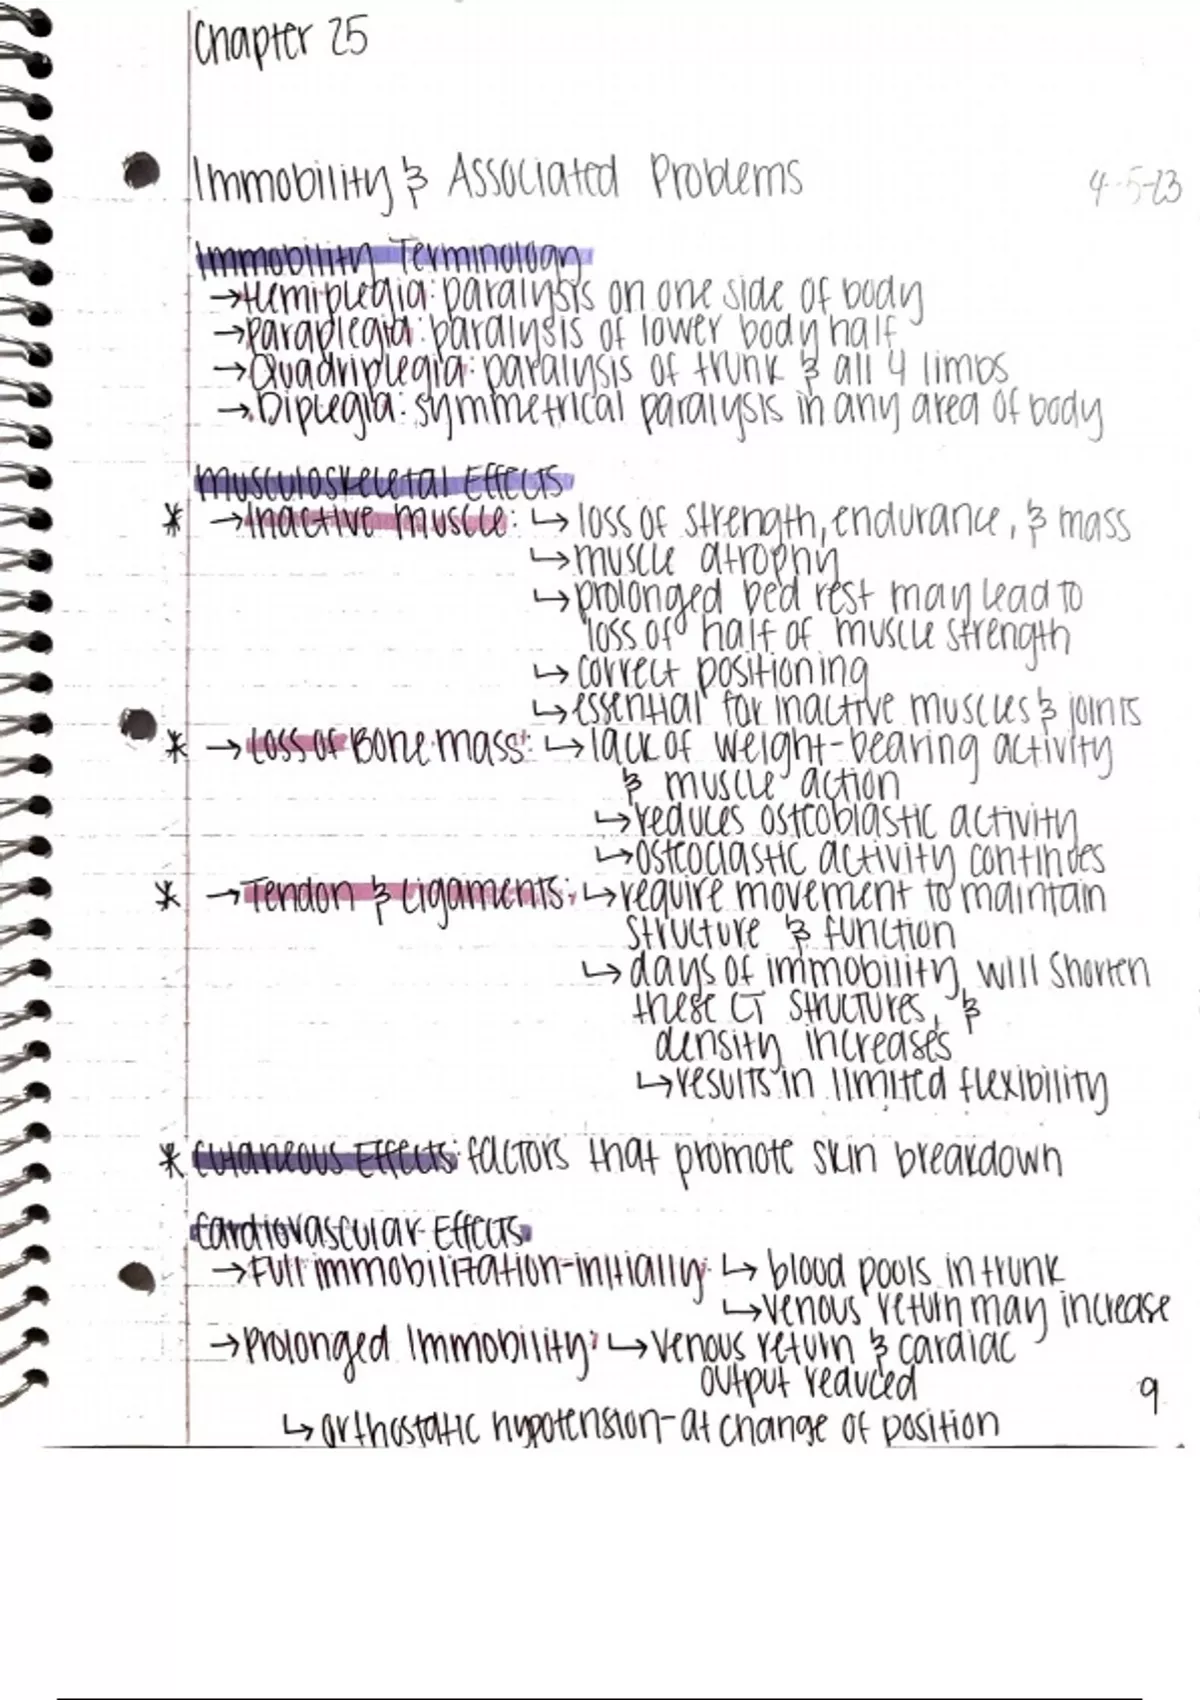 Chapter 25
Immobility & Associated Problems 4-5-23
Immobility Terminology
→Hemiplegia: paralysis on one side of body
→Paraplegia: paralysis of lower body half
→Quadriplegia: paralysis of trunk & all 4 limbs
→Diplegia: symmetrical paralysis in any area of body
Musculoskeletal Effects
* →Inactive muscle: ↳ loss of strength, endurance, & mass
↳ muscle atrophy
↳ prolonged bed rest may lead to
loss of half of muscle strength
↳ correct positioning
↳ essential for inactive muscles & joints
* → Loss of Bone mass: ↳ lack of weight-bearing activity
& muscle action
↳ reduces osteoblastic activity
↳ osteoclastic activity continues
* → Tendon & Ligaments: ↳ require movement to maintain
structure & function
↳ days of immobility will shorten
these CT structures, &
density increases
↳ results in limited flexibility
* Cutaneous Effects: factors that promote skin breakdown
Cardiovascular Effects
→ Full immobilization-initially: ↳ blood pools in trunk
↳ venous return may increase
→ Prolonged Immobility: ↳ venous return & cardiac
output reduced
↳ orthostatic hypotension-at change of position
9